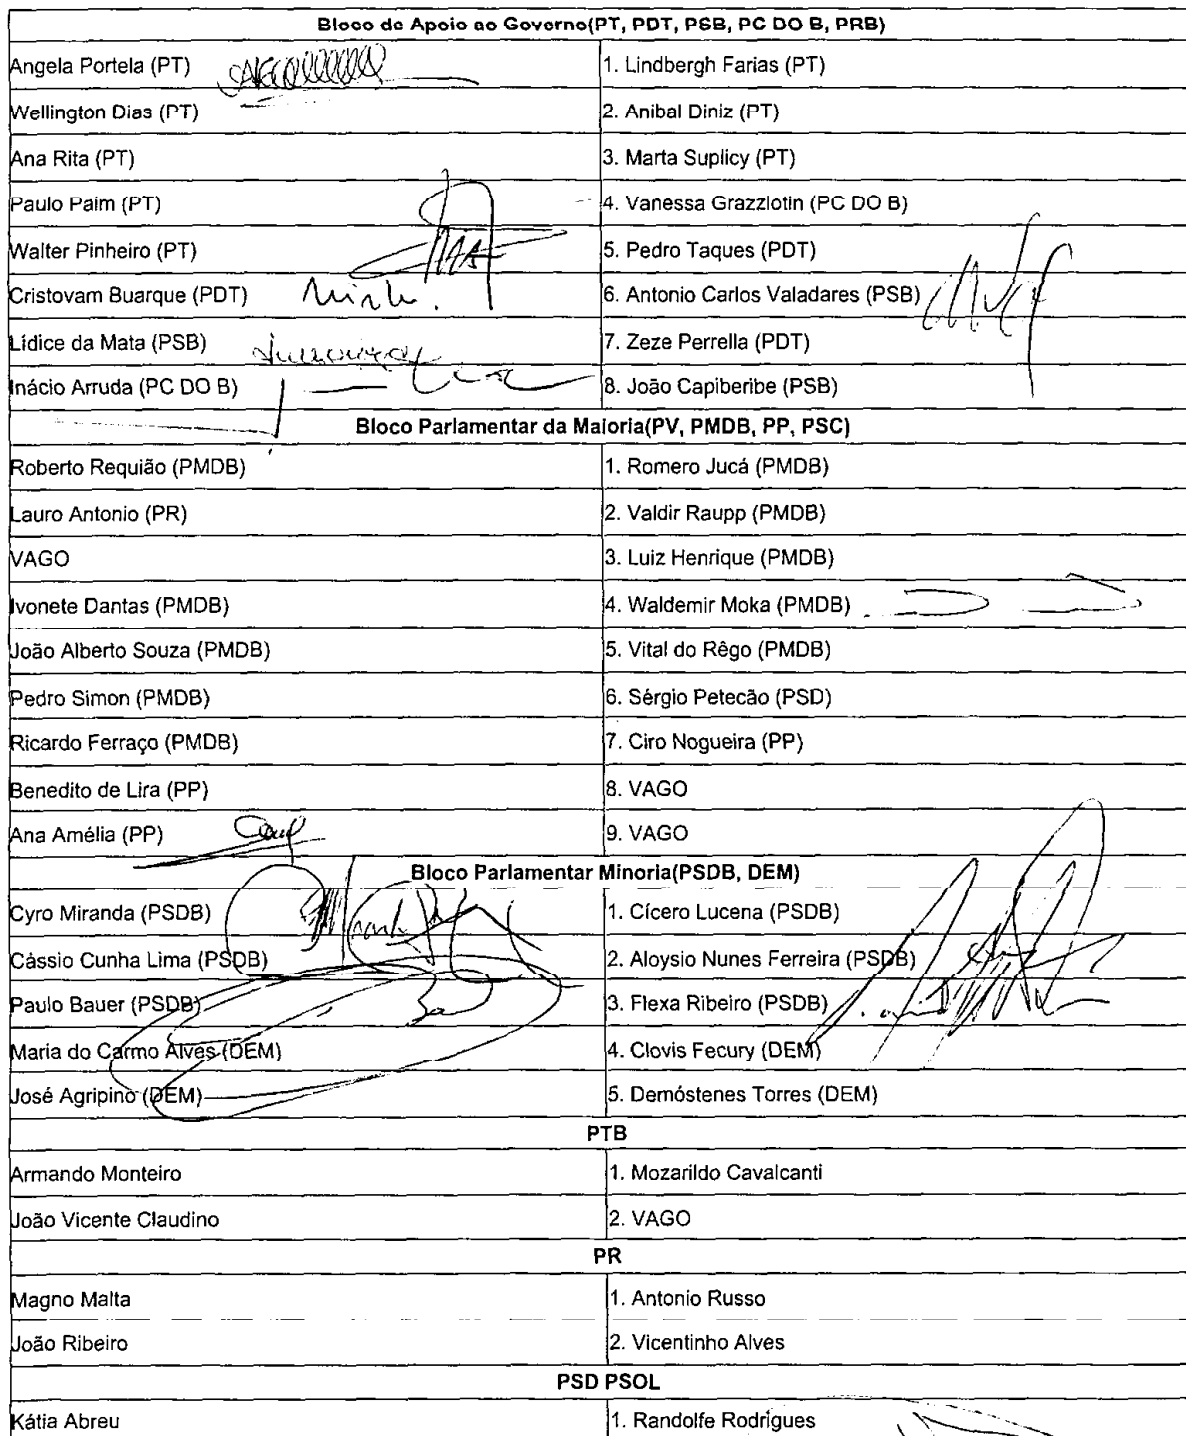 Bloco de Apoio ao Governo(PT, PDT, PSB, PC DO B, PRB)
Angela Portela (PT) 1. Lindbergh Farias (PT)
Wellington Dias (PT) 2. Anibal Diniz (PT)
Ana Rita (PT) 3. Marta Suplicy (PT)
Paulo Paim (PT) 4. Vanessa Grazziotin (PC DO B)
Walter Pinheiro (PT) 5. Pedro Taques (PDT)
Cristovam Buarque (PDT) 6. Antonio Carlos Valadares (PSB)
Lídice da Mata (PSB) 7. Zeze Perrella (PDT)
Inácio Arruda (PC DO B) 8. João Capiberibe (PSB)
Bloco Parlamentar da Maioria(PV, PMDB, PP, PSC)
Roberto Requião (PMDB) 1. Romero Jucá (PMDB)
Lauro Antonio (PR) 2. Valdir Raupp (PMDB)
VAGO 3. Luiz Henrique (PMDB)
Ivonete Dantas (PMDB) 4. Waldemir Moka (PMDB)
João Alberto Souza (PMDB) 5. Vital do Rêgo (PMDB)
Pedro Simon (PMDB) 6. Sérgio Petecão (PSD)
Ricardo Ferraço (PMDB) 7. Ciro Nogueira (PP)
Benedito de Lira (PP) 8. VAGO
Ana Amélia (PP) 9. VAGO
Bloco Parlamentar Minoria(PSDB, DEM)
Cyro Miranda (PSDB) 1. Cícero Lucena (PSDB)
Cássio Cunha Lima (PSDB) 2. Aloysio Nunes Ferreira (PSDB)
Paulo Bauer (PSDB) 3. Flexa Ribeiro (PSDB)
Maria do Carmo Alves (DEM) 4. Clovis Fecury (DEM)
José Agripino (DEM) 5. Demóstenes Torres (DEM)
PTB
Armando Monteiro 1. Mozarildo Cavalcanti
João Vicente Claudino 2. VAGO
PR
Magno Malta 1. Antonio Russo
João Ribeiro 2. Vicentinho Alves
PSD PSOL
Kátia Abreu 1. Randolfe Rodrigues